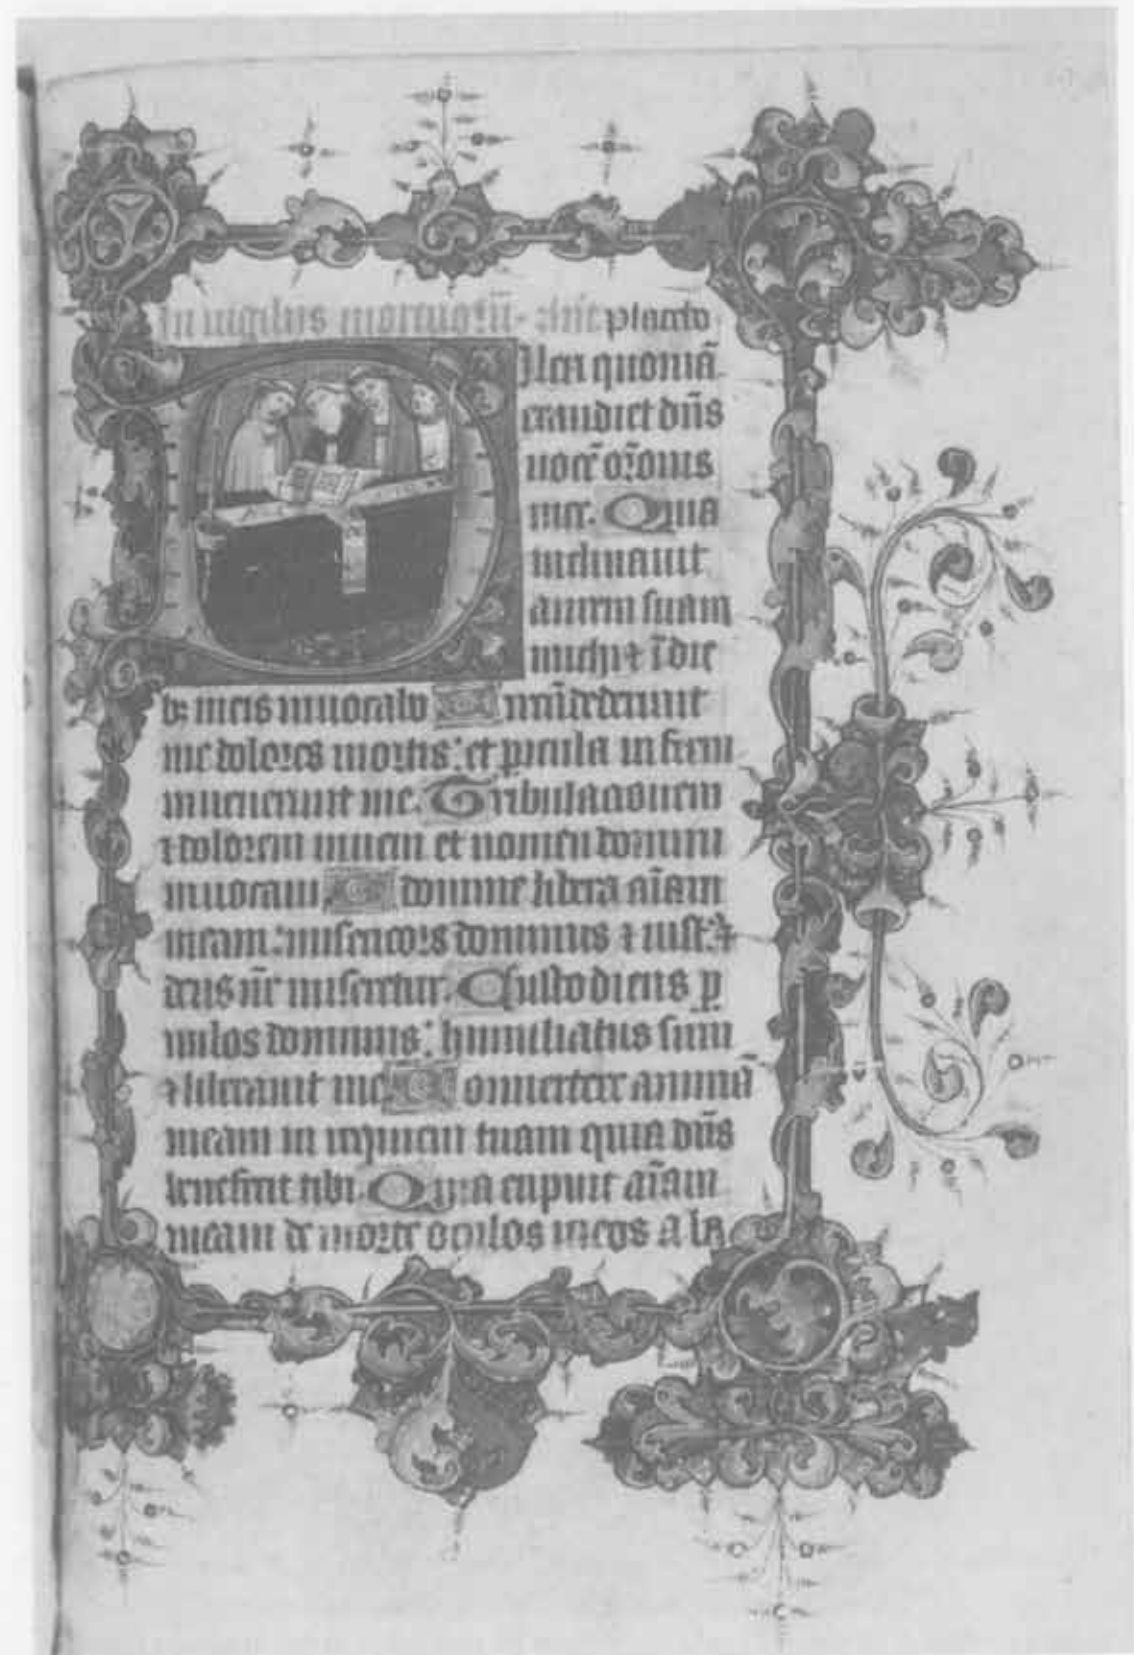 In uigiliis mortuoꝝ. añt placebo
Dilexi quoniā
exaudiet dñs
uocē or̄onis
mee. Quia
inclinauit
aurem suam
michi ⁊ ī die
bꝫ meis inuocabo Circūdederunt
me dolores mortis: et ꝑicula inferni
inuenerunt me. Tribulac̄ionem
⁊ dolorem inueni et nomen domini
inuocaui O domine libera ai̅am
meam: misericors dominus ⁊ iustꝰ ⁊
deus nr̄ miseretur. Custodiens ꝑ
uulos dominus: humiliatus sum
⁊ liberauit me Conuertere animā
meam in requiem tuam quia dñs
benefecit tibi. Quia eripuit ai̅am
meam de morte oculos meos a la